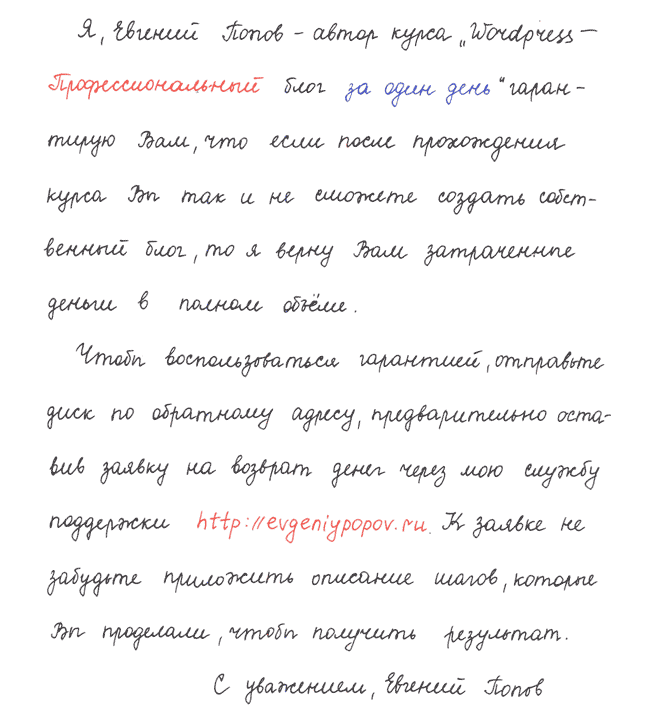 Я, Евгений Попов – автор курса „Wordpress –
Профессиональный блог за один день" гаран-
тирую Вам, что если после прохождения
курса Вы так и не сможете создать собст-
венный блог, то я верну Вам затраченные
деньги в полном объёме.
Чтобы воспользоваться гарантией, отправьте
диск по обратному адресу, предварительно оста-
вив заявку на возврат денег через мою службу
поддержки http://evgeniypopov.ru. К заявке не
забудьте приложить описание шагов, которые
Вы проделали, чтобы получить результат.
С уважением, Евгений Попов